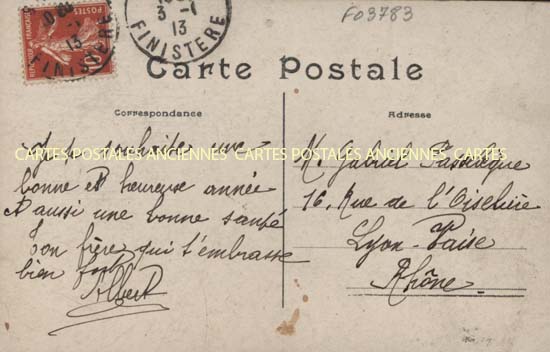 F03783
POSTES
FINISTERE
3 -1
13
FINISTERE
Carte Postale
Correspondance
Adresse
souhaite une
CARTES POSTALES ANCIENNES CARTES POSTALES ANCIENNES CARTES
bonne et heureuse année
et aussi une bonne santé
Ton frère qui t'embrasse
bien fort
Albert
M. Gabriel
16, Rue de l'Oiselière
Lyon-Vaise
Rhône